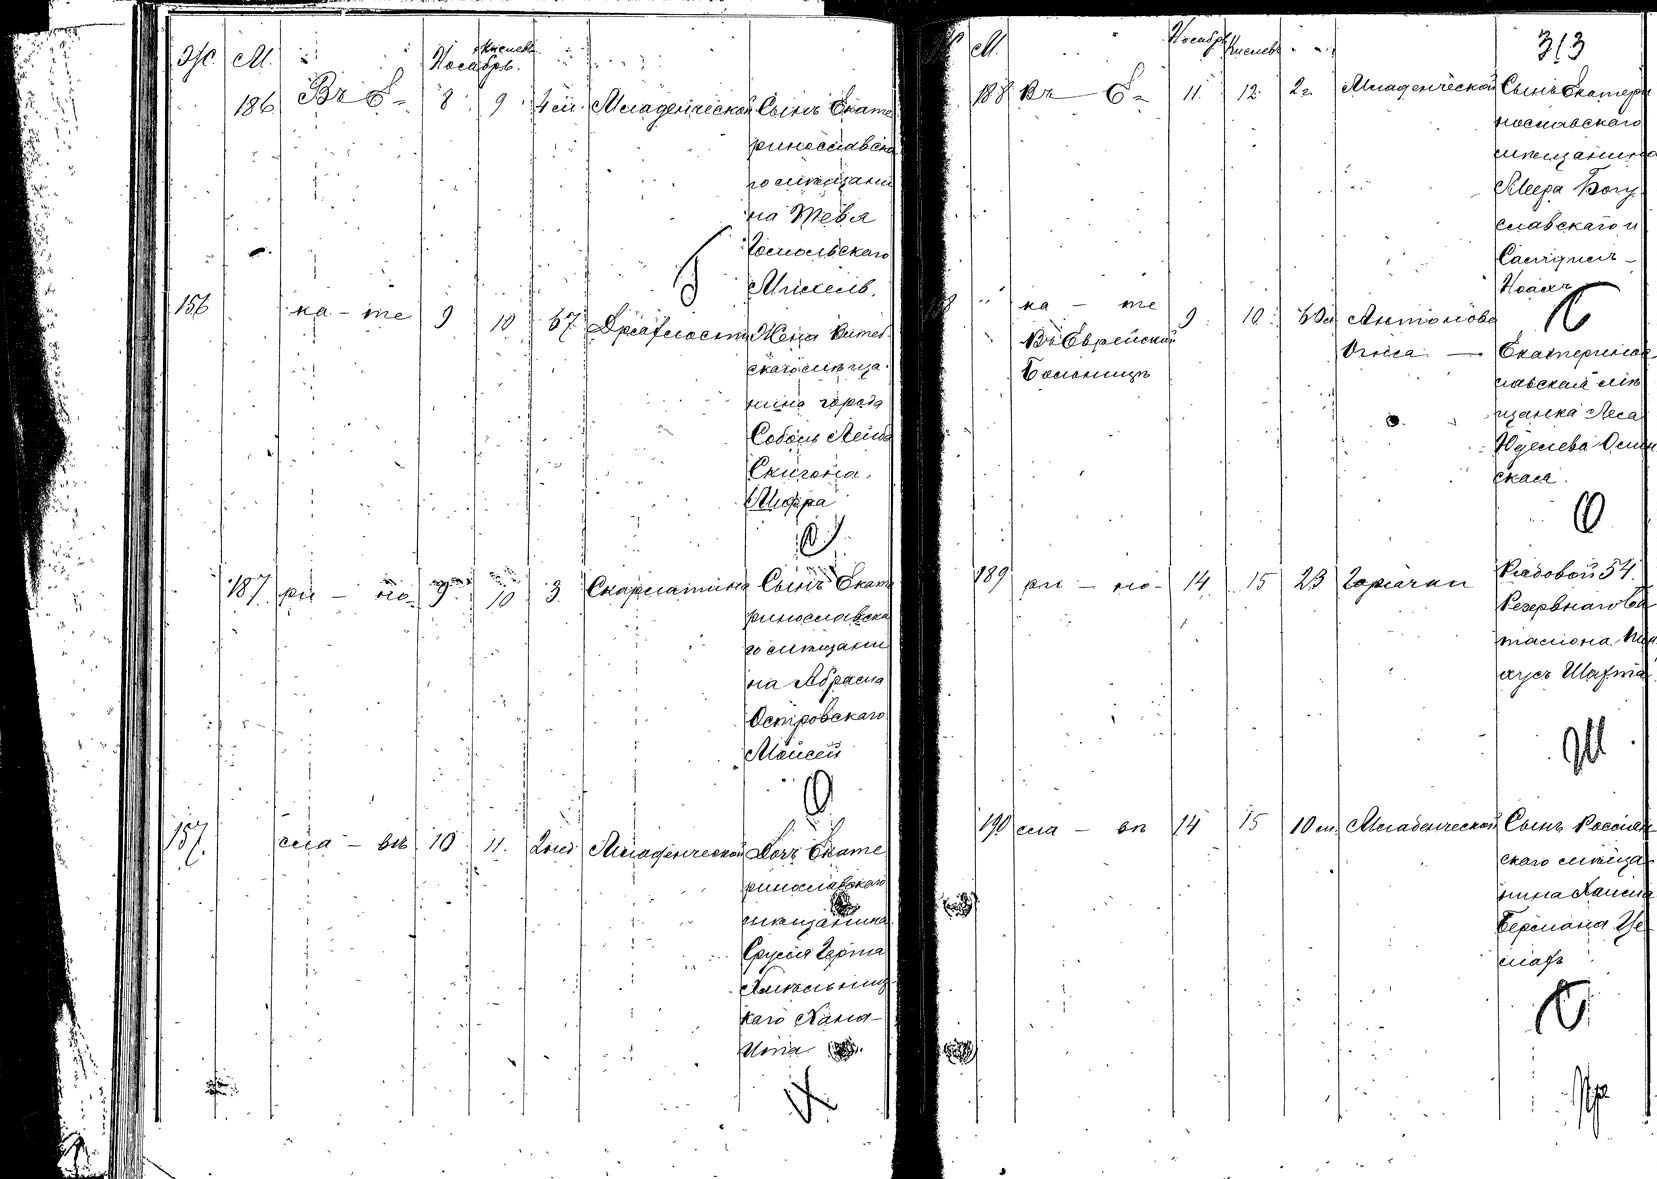 Ж. М. Ноябрь. Кислевъ.
186 Въ Е- 8 9 4 м. Младенческой Сынъ Екате
ринославска
го мѣщани
на Тевя
Гомольскаго
Михель.
Г
156 ка - те 9 10 67 Дряхлости Жена Витеб
скаго мѣща
нина города
Соболь Лейба
Скигона,
Мирра
С
187. ри - но- 9 10 3 Скарлатина Сынъ Екате
ринославска
го мѣщани
на Абрама
Островскаго
Мойсей
О
157. сла - вѣ 10 11. Младенческой Дочь Екате
ринославскаго
мѣщанина
Сруля Герша
Хмѣльниц
каго Хана-
Ита
Х
Ж. М. Ноябрь Кислевъ 313
188 Въ Е- 11 12 2 г. Младенческой Сынъ Екатери
нославскаго
мѣщанина
Меера Богу
славскаго и
Ноахъ
158 ка - те 9 10 60 л Антонова
Въ Еврейской Огня - Екатеринос
Больницѣ лавская мѣ
щанка Леса
Юделева Осин
ская.
О
189 ри - но- 14 15 23 Горячки Рядовой 54.
Резервнаго Ба
талiона
Ш
190 сла - вѣ 14 15 10 м. Младенческой Сынъ Россiен
скаго мѣща
нина Хаима
Бермана Це
махъ